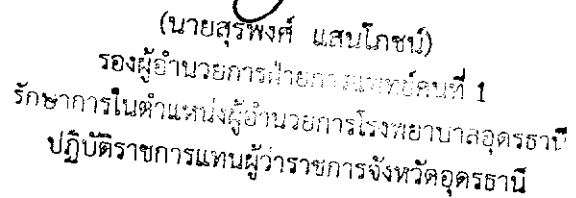 (นายสุรพงศ์ แสนโภชน์)
รองผู้อำนวยการฝ่ายการแพทย์คนที่ 1
รักษาการในตำแหน่งผู้อำนวยการโรงพยาบาลอุดรธานี
ปฏิบัติราชการแทนผู้ว่าราชการจังหวัดอุดรธานี